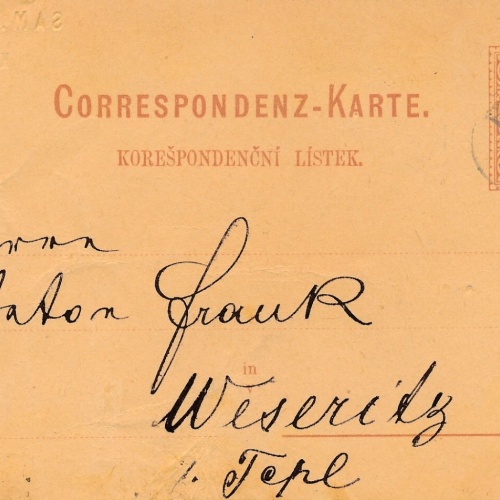 CORRESPONDENZ-KARTE.
KOREŠPONDENČNÍ LÍSTEK.
rrn
nton Frank
in
Weseritz
Tepl